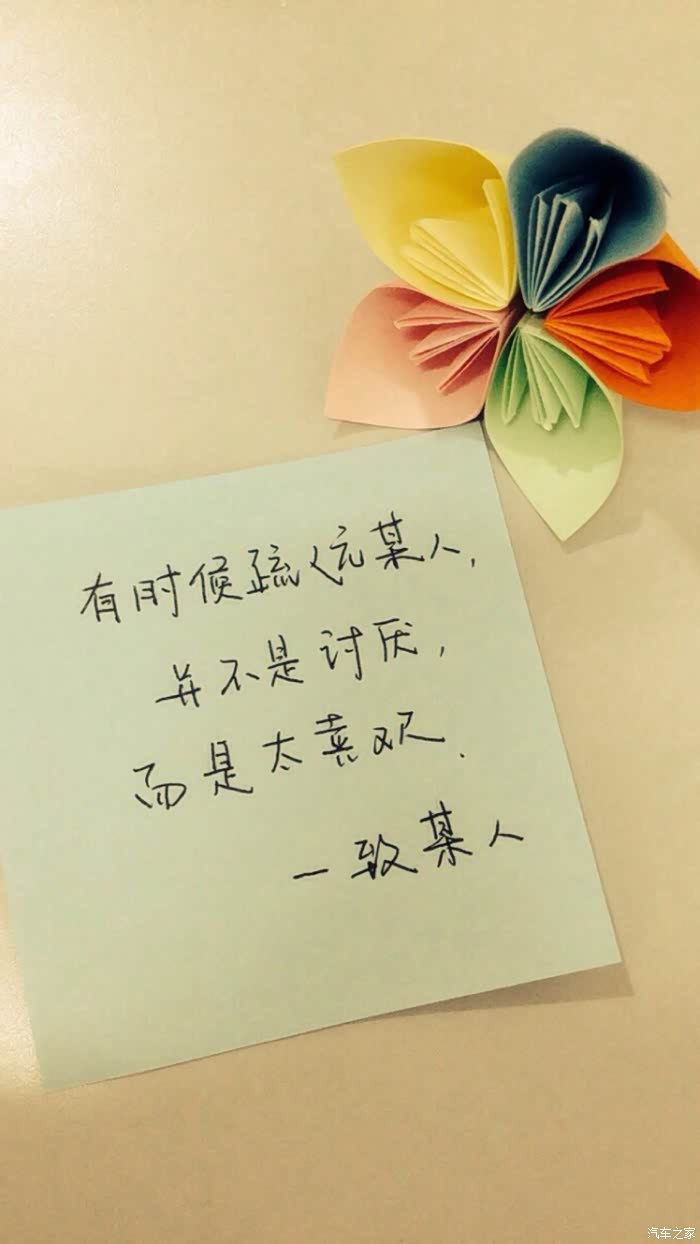 有时候疏远某人,
并不是讨厌,
而是太喜欢.
一致某人
汽车之家